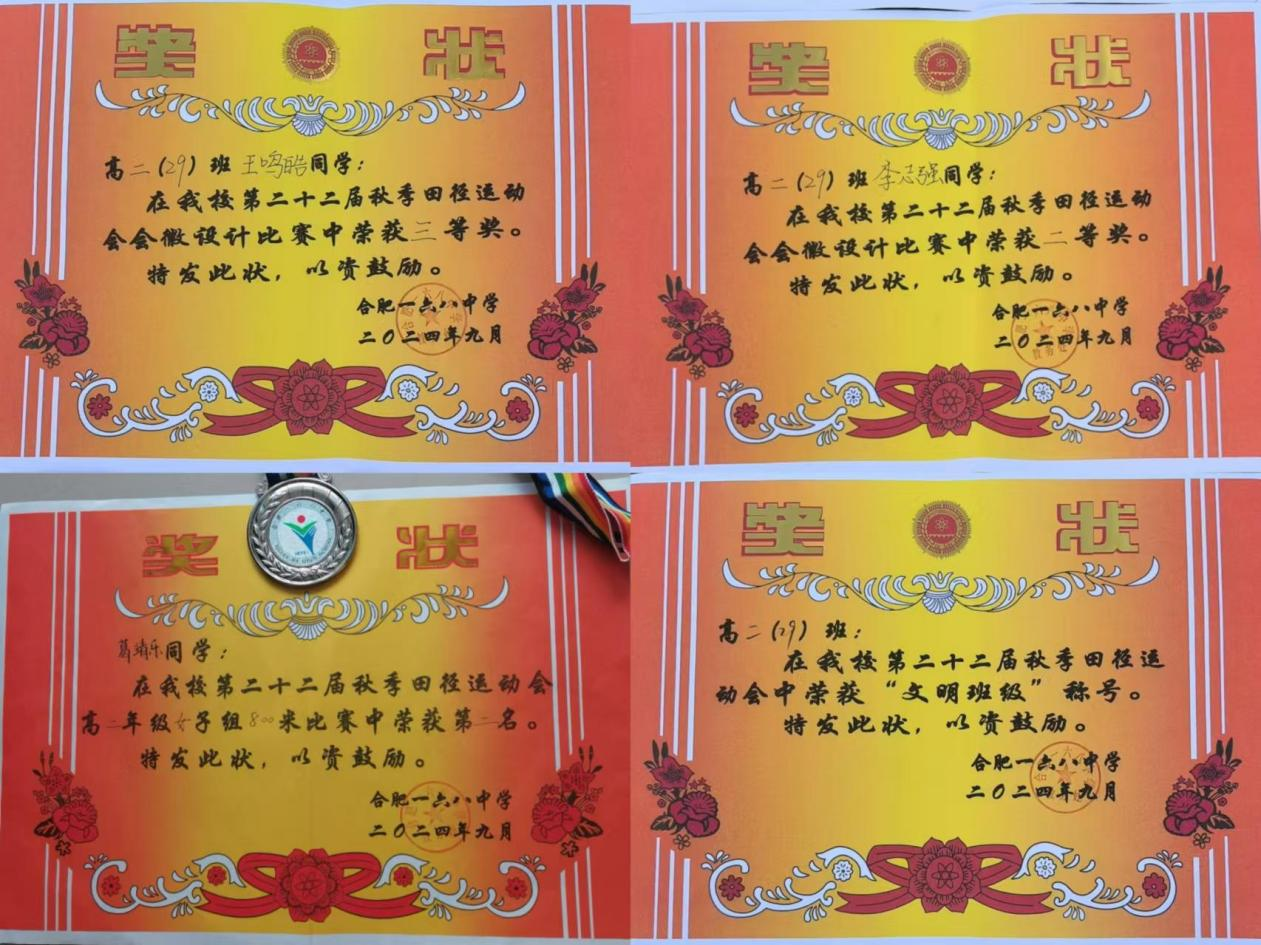 奖 状
高二(29)班王鸣皓同学:
在我校第二十二届秋季田径运动
会会徽设计比赛中荣获三等奖。
特发此状,以资鼓励。
合肥一六八中学
二〇二四年九月
奖 状
高二(29)班李志强同学:
在我校第二十二届秋季田径运动
会会徽设计比赛中荣获二等奖。
特发此状,以资鼓励。
合肥一六八中学
二〇二四年九月
奖 状
葛靖乐同学:
在我校第二十二届秋季田径运动会
高二年级女子组800米比赛中荣获第二名。
特发此状,以资鼓励。
合肥一六八中学
二〇二四年九月
奖 状
高二(29)班:
在我校第二十二届秋季田径运
动会中荣获“文明班级”称号。
特发此状,以资鼓励。
合肥一六八中学
二〇二四年九月